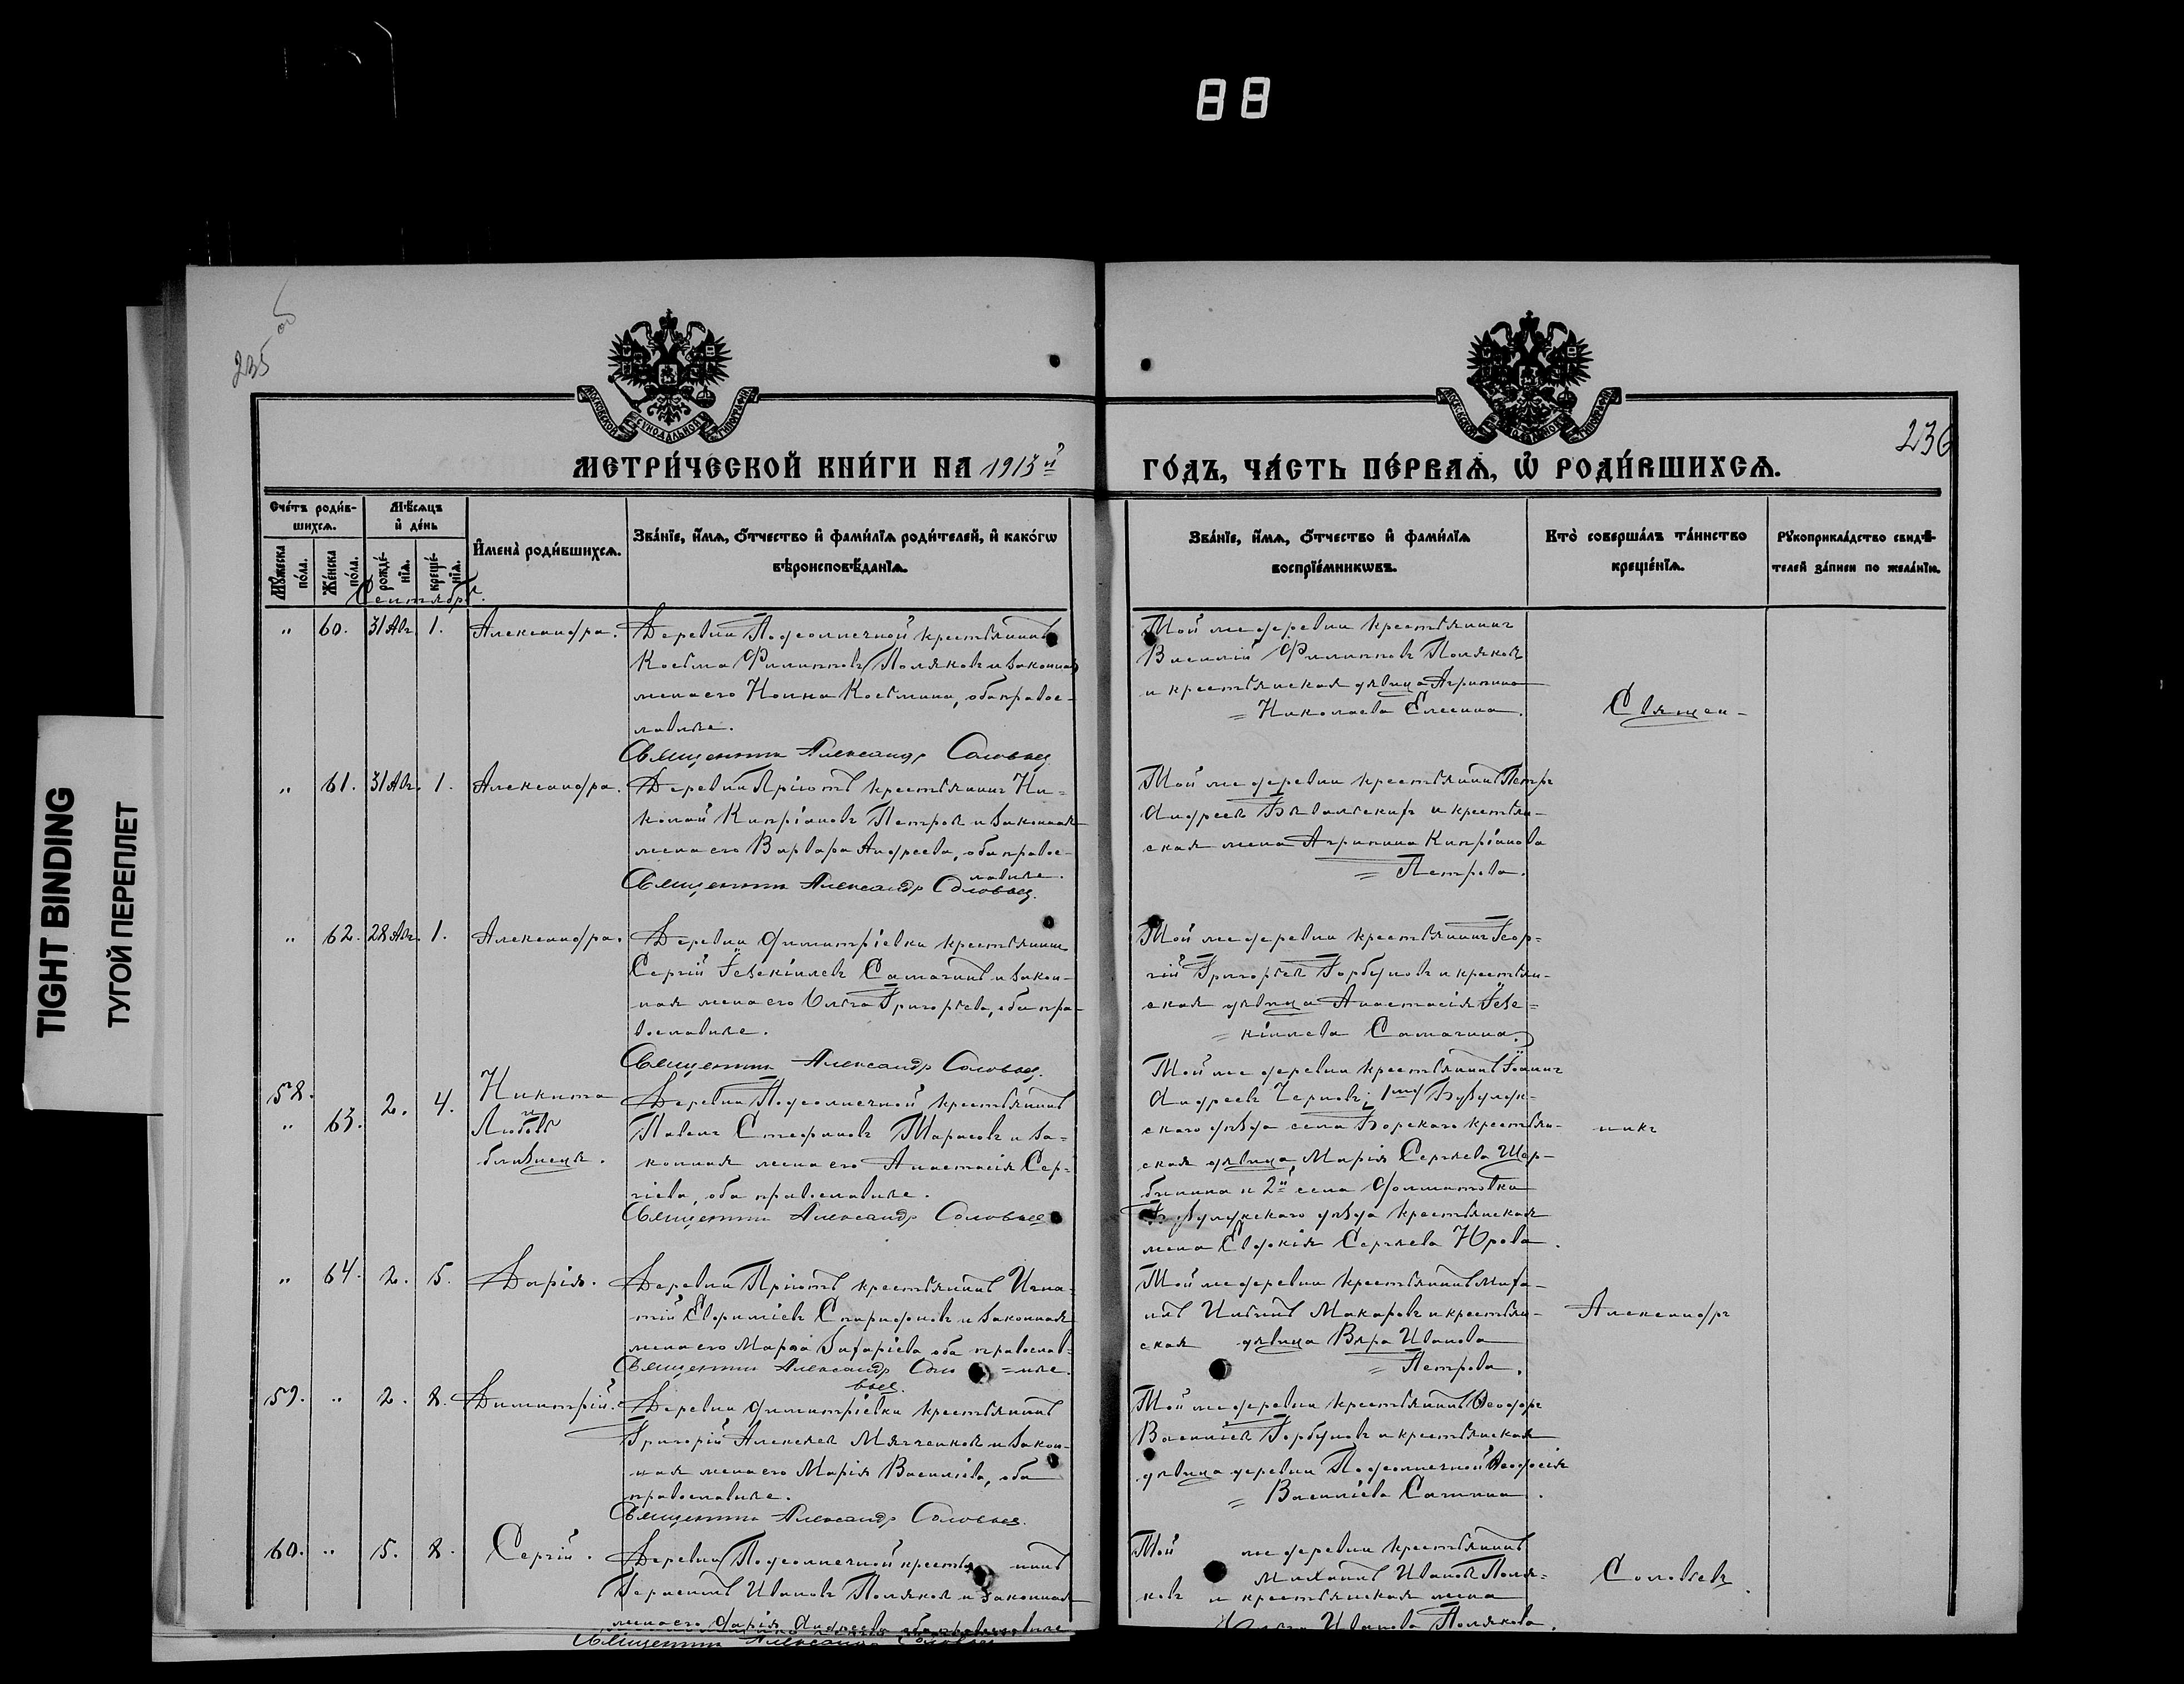 88
TIGHT BINDING
ТУГОЙ ПЕРЕПЛЕТ
235 об
236
МОСКОВСКОЙ СУНОДАЛЬНОЙ ТИПОГРАФIИ
МЕТРИ́ЧЕСКОЙ КНИ́ГИ НА 1913й
ГО́ДЪ, ЧА́СТЬ ПЕ́РВАѦ, Ѡ҆ РОДИ́ВШИХСѦ.
Сче́тъ роди́в-
шихсѧ.
Мѹ́жеска по́ла.
Же́нска по́ла.
Мѣ́сѧцъ
и҆ де́нь
рожде́-
нїѧ.
креще́-
нїѧ.
И҆мена̀ роди́вшихсѧ.
Зва́нїе, и҆́мѧ, ѻ҆́тчество и҆ фами́лїѧ роди́телей, и҆ како́гѡ
вѣроисповѣ́данїѧ.
Зва́нїе, и҆́мѧ, ѻ҆́тчество и҆ фами́лїѧ
воспрїе́мникѡвъ.
Кто̀ соверша́лъ та́инство
креще́нїѧ.
Рѹкоприкла́дство свидѣ́-
телей за́писи по жела́нїю.
Сентябрь.
" 60. 31 Авг. 1. Александра.
Деревни Подсолнечной крестьянинъ
Косьма Филипповъ Поляковъ и законная
жена его Нонна Косьмина, оба правос-
лавные.
Священникъ Александръ Соловьев
Той же деревни крестьянинъ
Василій Филипповъ Поляковъ
и крестьянская дѣвица Агрипина
= Николаева Елесина.
Священ-
" 61. 31 Авг. 1. Александра.
Деревни Пріютъ крестьянинъ Ни-
колай Кипріановъ Петровъ и законная
жена его Варвара Андреева, оба правос-
лавные.
Священникъ Александръ Соловьев
Той же деревни крестьянинъ Петръ
Андреевъ и крестьян-
ская жена Агрипина Кипріанова
= Петрова.
" 62. 28 Авг. 1. Александра.
Деревни Димитріевки крестьянинъ
Сергій Іезекіилевъ Самагинъ и закон-
ная жена его Ольга Григорьева, оба пра-
вославные.
Священникъ Александръ Соловьев
Той же деревни крестьянинъ Геор-
гій Григорьевъ Горбуновъ и крестьян-
ская дѣвица Анастасія Іезе-
= кіилева Самагина.
58. " 63. 2. 4.
Никита
и
Любовь
близнецы.
Деревни Подсолнечной крестьянинъ
Павелъ Стефановъ Тарасовъ и за-
конная жена его Анастасія Сер-
гіева, оба православные.
Священникъ Александръ Соловьев
Той же деревни крестьянинъ Іоаннъ
Андреевъ Черновъ; Бузулук-
скаго уѣзда села Борскаго крестьян-
ская дѣвица Марія Сергѣева Щер-
бинина и 2й села
Бузулукскаго уѣзда крестьянская
жена Евдокія Сергѣева Юрова.
никъ
" 64. 2. 5. Дарія.
Деревни Пріютъ крестьянинъ Игна-
тій Евфиміевъ Спиридоновъ и законная
жена его Марѳа Захаріева оба православ-
= ные.
Священникъ Александръ Соло
вьев.
Той же деревни крестьянинъ Миха-
илъ Ильинъ Макаровъ и крестьян-
ская дѣвица Вѣра Иванова
= Петрова.
Александръ
59. " 2. 8. Димитрій.
Деревни Димитріевки крестьянинъ
Григорій Алексѣевъ Мягченковъ и закон-
ная жена его Марія Василіева, оба
православные.
Священникъ Александръ Соловьев
Той же деревни крестьянинъ Ѳеодоръ
Василіевъ Горбуновъ и крестьянская
дѣвица деревни Подсолнечной Ѳеодосія
= Василіева Сапина.
60. " 5. 8. Сергій.
Деревни Подсолнечной крестья нинъ
Герасимъ Ивановъ Поляковъ и законная
жена его Дарія Андреева оба православные
Священникъ Александръ Соловьев
Той же деревни крестьянинъ
Михаилъ Ивановъ Поля-
ковъ и крестьянская жена
Иванова Полякова.
Соловьевъ.